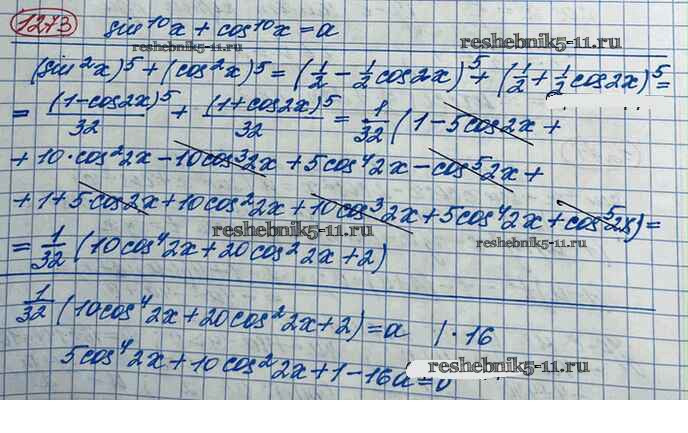 1273 sin¹⁰x + cos¹⁰x = a
reshebnik5-11.ru
(sin²x)⁵ + (cos²x)⁵ = (1/2 − 1/2 cos2x)⁵ + (1/2 + 1/2 cos2x)⁵ =
= (1−cos2x)⁵/32 + (1+cos2x)⁵/32 = 1/32 (1 − 5cos2x +
reshebnik5-11.ru
+ 10·cos²2x − 10cos³2x + 5cos⁴2x − cos⁵2x +
+ 1 + 5cos2x + 10cos²2x + 10cos³2x + 5cos⁴2x + cos⁵2x) =
reshebnik5-11.ru reshebnik5-11.ru
= 1/32 (10cos⁴2x + 20cos²2x + 2)
1/32 (10cos⁴2x + 20cos²2x + 2) = a | · 16
5cos⁴2x + 10cos²2x + 1 − 16a = 0
reshebnik5-11.ru